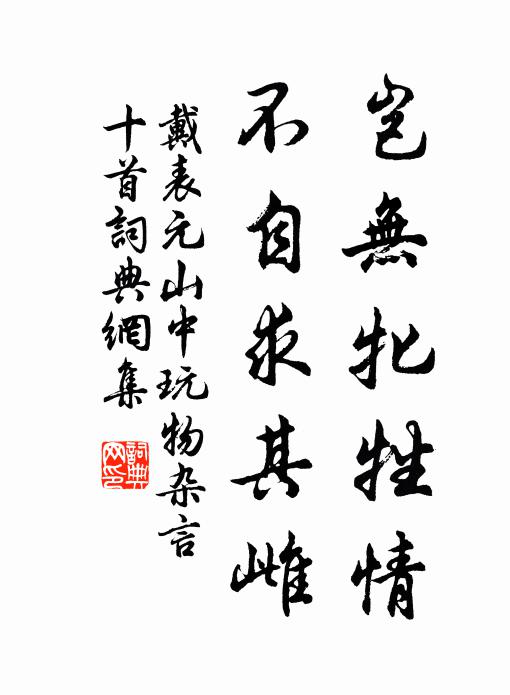 豈無牝牲情
不自求其雌
戴表元山中玩物杂言
十首詞典網集
詞典
网印